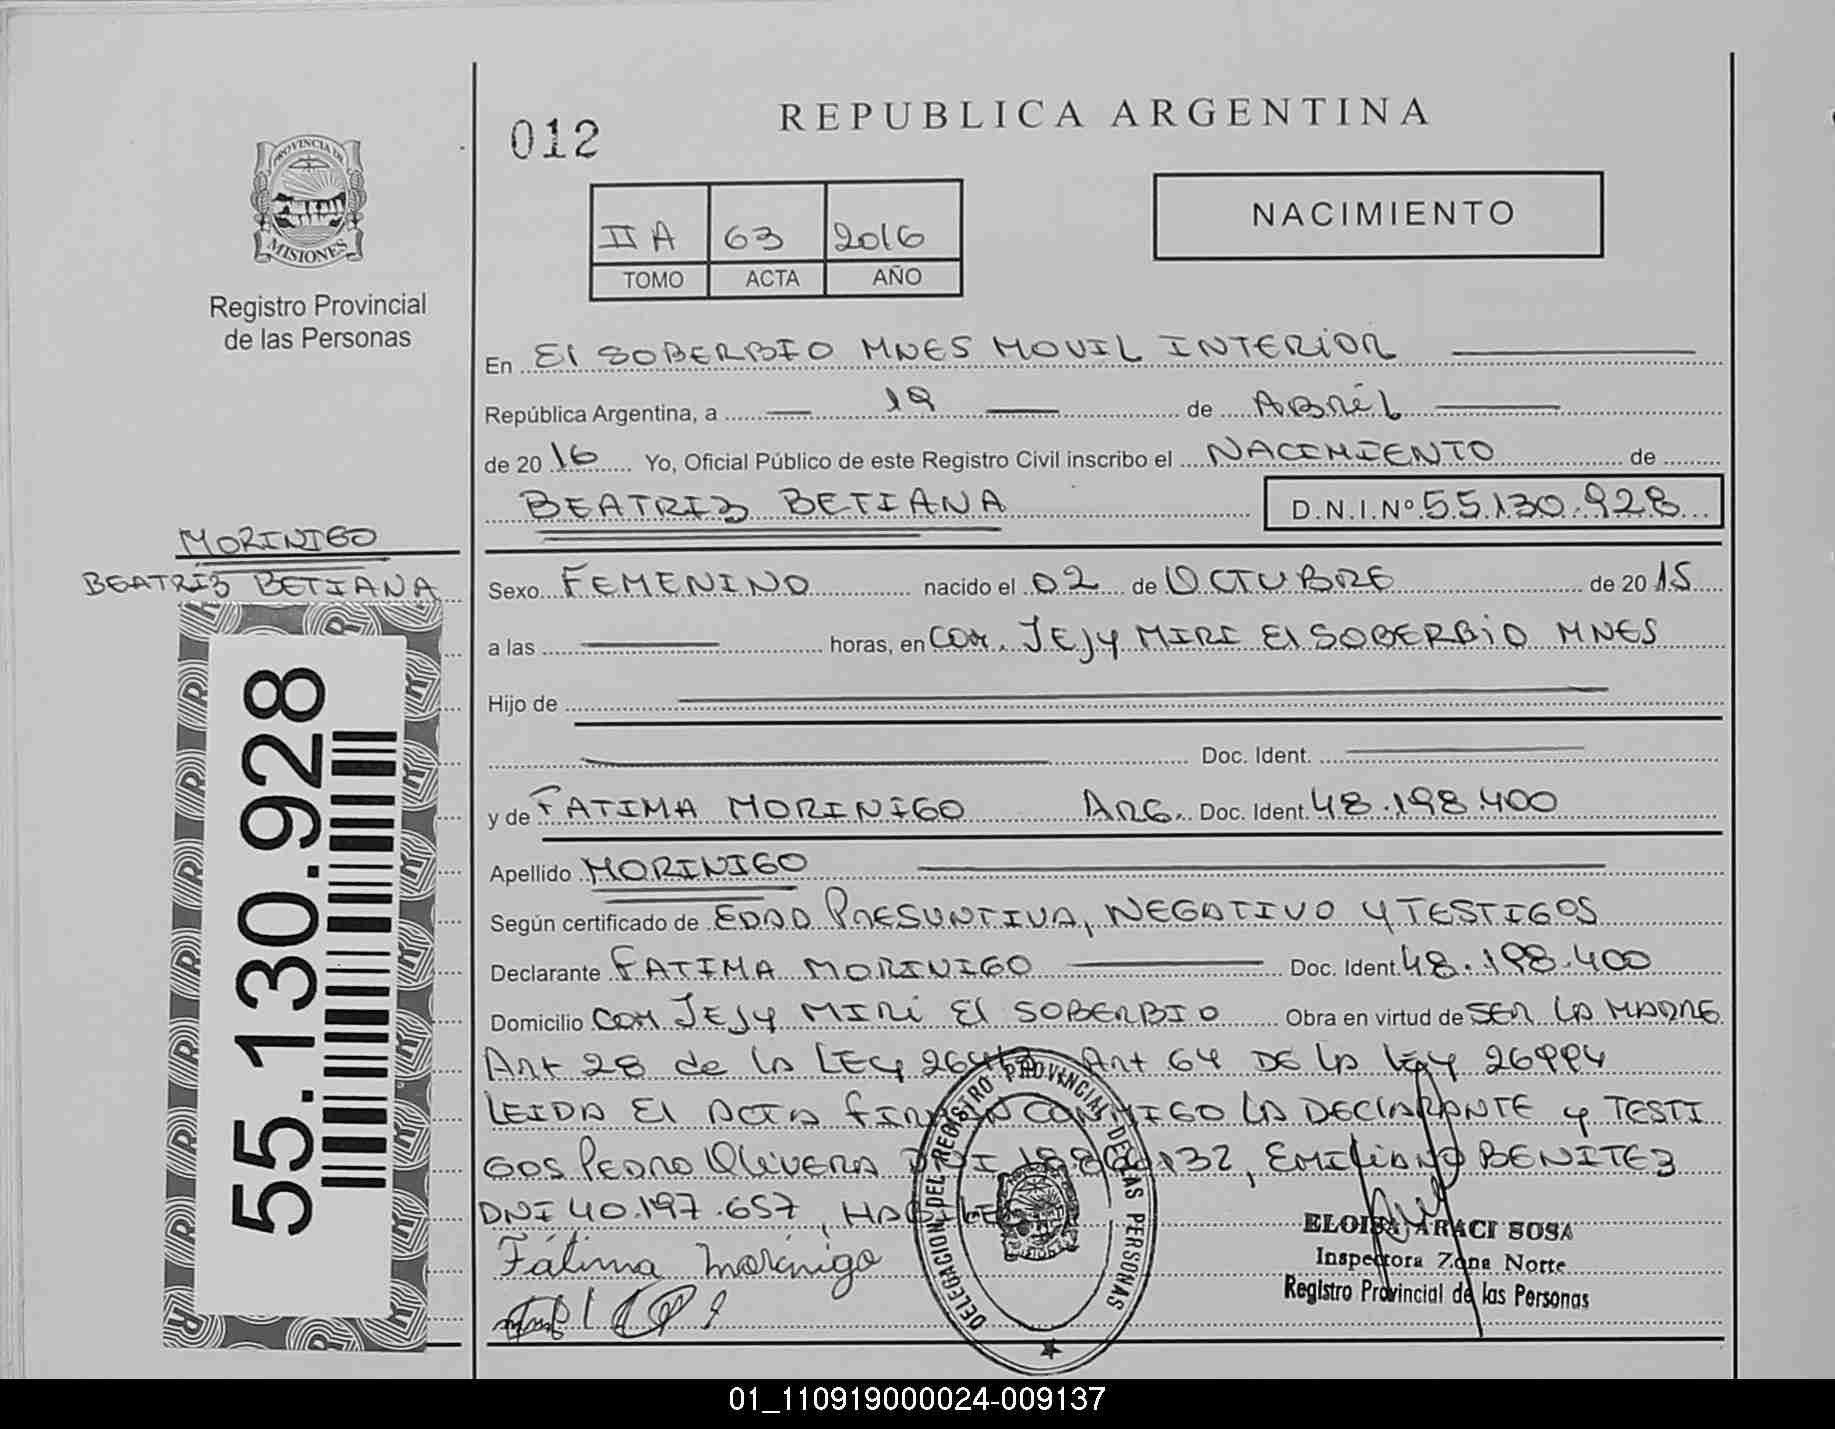 REPUBLICA ARGENTINA
012
NACIMIENTO
PROVINCIA DE
MISIONES
Registro Provincial
de las Personas
II A 63 2016
TOMO ACTA AÑO
En El SOBERBIO MNES MOVIL INTERIOR
República Argentina, a 19 de ABRIL
de 2016 Yo, Oficial Público de este Registro Civil inscribo el NACIMIENTO de
BEATRIZ BETIANA D.N.I.Nº 55.130.928
MORINIGO
BEATRIZ BETIANA
55.130.928
Sexo FEMENINO nacido el 02 de OCTUBRE de 2015
a las horas, en COM. JEJY MIRI El SOBERBIO MNES
Hijo de
Doc. Ident.
y de FATIMA MORINIGO ARG. Doc. Ident. 48.198.400
Apellido MORINIGO
Según certificado de EDAD PRESUNTIVA, NEGATIVO Y TESTIGOS
Declarante FATIMA MORINIGO Doc. Ident. 48.198.400
Domicilio COM JEJY MIRI El SOBERBIO Obra en virtud de SER LA MADRE
Art 28 de la LEY Art 64 DE LA LEY 26994
LEIDA El ACTA FIRMAN CONMIGO LA DECLARANTE Y TESTI
GOS PEDRO OLIVERA DNI EMILIANO BENITEZ
DNI 40.197.657, HABILES
Fátima Morinigo
DELEGACION DEL REGISTRO PROVINCIAL DE LAS PERSONAS
ELOISA ARACI SOSA
Inspectora Zona Norte
Registro Provincial de las Personas
01_110919000024-009137